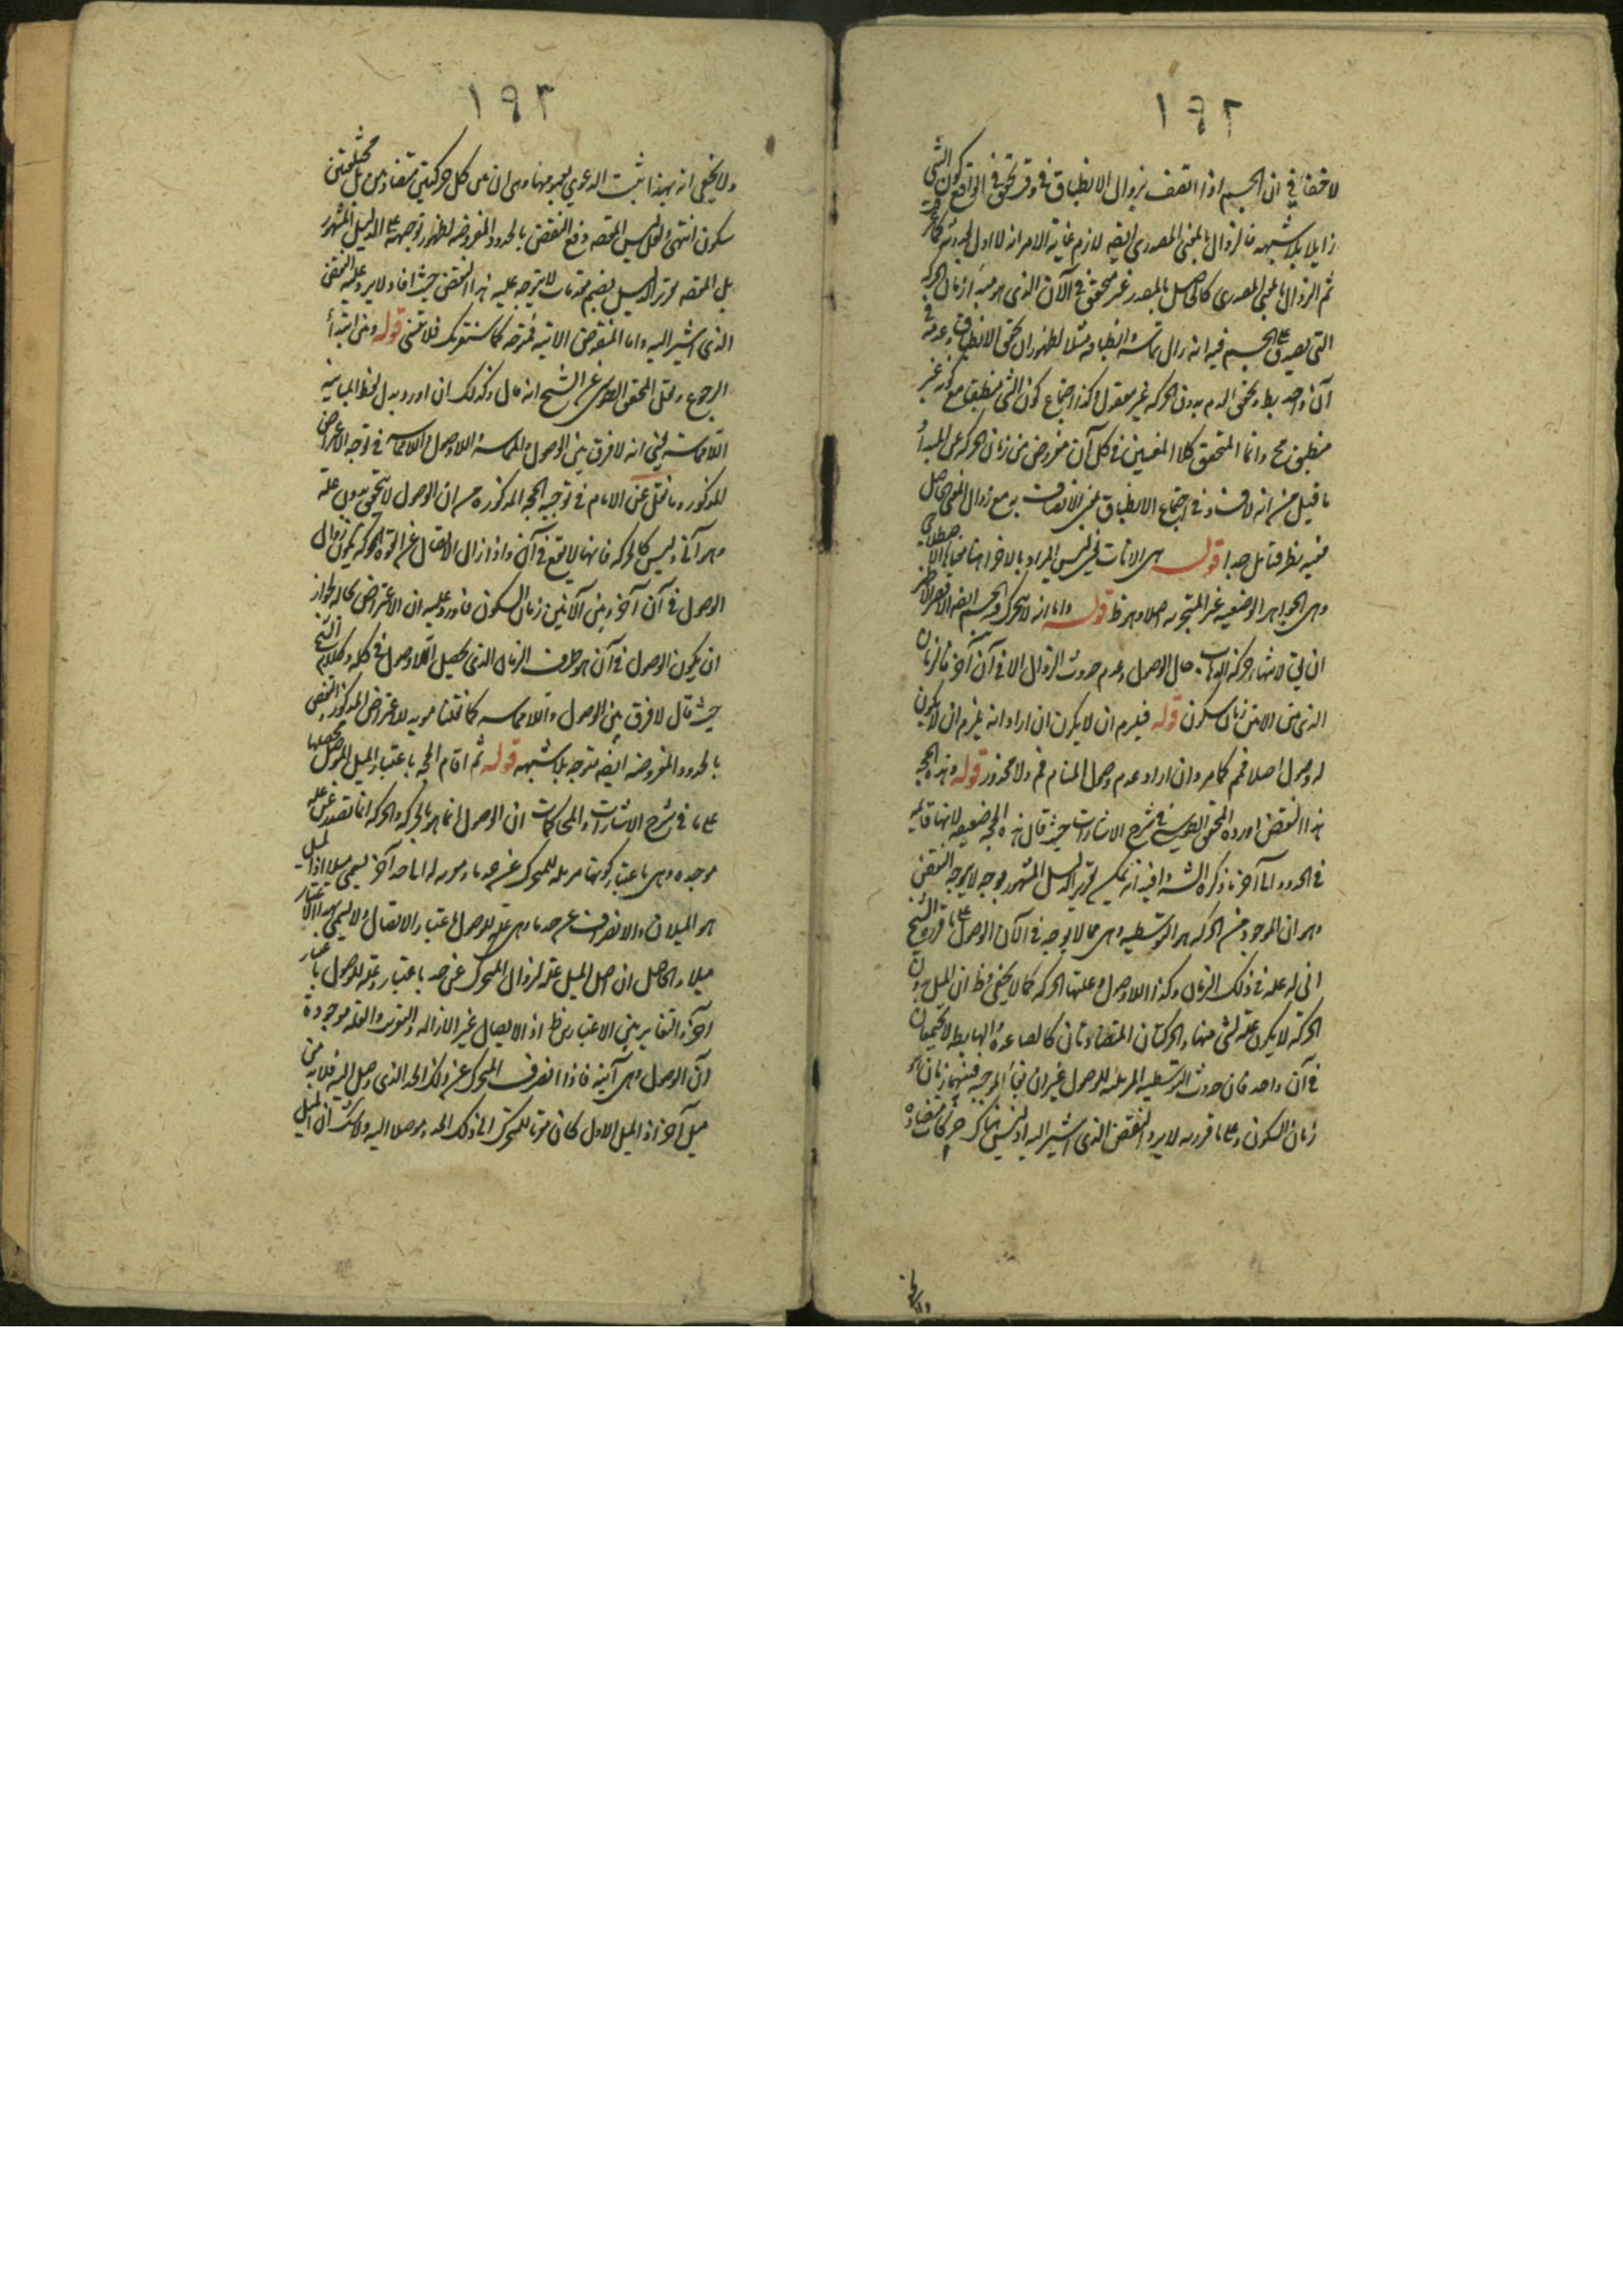 ١٩٢
لا خفاء في ان الجسم اذا اتصف بزوال الانطباق في وقت تحقق في الواقع كون الشي
زايلا بلا شبهه فالزوال بالمعنى المصدري ايضه لازم غاية الامر انه لا اول لحدوثه
ثم الزوال بالمعنى المصدري كالحاصل بالمصدر غير متحقق في الآن الذي هو مبدأ زمان الحركه
التي يصدق على الجسم فيه انه زال مماسة وانطباقه مثلا لظهور ان تحقق الانطباق وعدمه في
آن واحد بط وتحقق الدم بدون الحركه غير معقول وكذا اجتماع كون الشي منطبق مع كونه غير
منطبق مح وانما المتحقق كلا المعنيين في كل آن مفروض من زمان الحركه عن المبدأ
ما قيل من انه لا فساد في اجتماع الانطباق بمعنى الاتصاف به مع زوال المعنى الحاصل
فيه نظر فتأمل جدا قوله هي الانات ليس المراد بالاخر
وهي الجواهر الوضعيه غير المتجزيه اصلا وهو ظ قوله واما انه لا يتحرك الجسم
ان بقي لانتهاء حركة الذهاب حال الوصول وعدم حدوث الزوال الا في آن آخر فالزمان
الذي بين الانين زمان سكون قوله فيلزم ان لا يكون ان اراد انه يلزم ان لا يكون
له وصول اصلا فمم كما مر وان اراد عدم وصول المنام فم ولا محذور قوله وهذه الحجه
هذا النقض اورده المحقق الطوسي في شرح الاشارات حيث قال هذه الحجه ضعيفه لانها قايمه
في الحدود الى آخر ما ذكره الش وفيه انه يمكن تقرير الدليل المشهور بوجه لا يوجه النقض
وهو ان الموجود من الحركه هو التوسطيه وهي مما لا يوجد في الآن الوصول على ما قرره الشيخ
اني له علة في ذلك الزمان وكذا اللاوصول وعلتها الحركه كما لا يخفى وظ ان الميل بدون
الحركه لا يكون علة لشي منهما والحركتان المتضادتان كالصاعدة والهابطه لا تجتمعان
في آن واحد فان حدوث التوسطيه المزيله للوصول غير ان بقاء الموجبه فبينهما زمان هو
زمان السكون وعلى ما قررنه لا يرد النقض الذي اشير اليه اذ ليس هناك حركات متضاده
١٩٣
ولا يخفى انه بهذا يثبت الدعوى بعمومها وهي ان بين كل حركتين متضادتين بل مختلفتين
سكون انتهى ولعل ليس المقصه دفع النقض بالحدود المفروضه لظهور توجهه على الدليل المشهور
بل المقصه تحرير الدليل بضم مقدمات لا يتوجه عليه هذا النقض حيث افاد ولا يرد عليه النقض
الذي اشير اليه واما النقوض الاتيه فتوجه كما سنقربك فلا تنس قوله ومن ابتداء
الرجوع ونقل المحقق الطوسي عن الشيخ انه قال وكذلك ان اورد بدل لفظ المباينه
اللامماسة يعني انه لا فرق بين الوصول والمماسه واللاوصول واللامماسه في توجه الاعراض
المذكور وما نقل عن الامام في توجيه الحجه المذكوره من ان الوصول لا يتحقق بدون علة
وهو آني وليس كالحركه فانها لا تقع في آن واذا زال الاتصال عن القوة المحركه يكون زوال
الوصول في آن آخر وبين الآنين زمان السكون فاورد عليه ان الاعتراض بحاله لجواز
ان يكون الوصول في آن هو طرف الزمان الذي يحصل اللاوصول في كله وكلام الشيخ
حيث قال لا فرق بين الوصول واللامماسه كما نقلنا مؤيد للاعتراض المذكور والنقض
بالحدود المفروضه ايضه متوجه بلا شبهه قوله ثم اقام الحجه باعتبار الميل الموصل محصلها
على ما في شرح الاشارات والمحاكمات ان الوصول انما هو بالحركه والحركه انما تصدر عن علة
موجده وهي باعتبار كونها مزيله للمتحرك عن حد ما وموصله له الى حد آخر يسمى ميلا اذ الميل
هو الميلان والانصراف عن حد ما وهي علة للوصول باعتبار الايصال ولا يسمى بهذا الاعتبار
ميلا والحاصل ان اصل الميل علة لزوال المتحرك عن حد باعتبار وعلة للوصول باعتبار
آخر والتغاير بين الاعتبارين ظ اذ الايصال غير الازاله والتقريب والعلة موجودة
آن الوصول وهي آنية فاذا انصرف المتحرك عن ذلك الحد الذي وصل اليه فلا بد من
ميل آخر اذ الميل الاول كان مقربا للمتحرك الى ذلك الحد وموصلا اليه ولا شك ان الميل